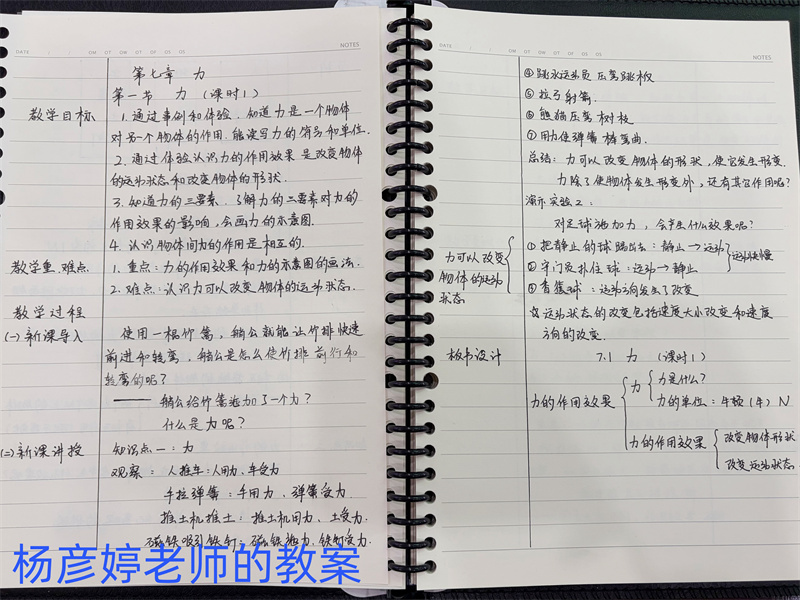 DATE
NOTES
第七章 力
第一节 力 (课时1)
教学目标
1. 通过事例和体验,知道力是一个物体
对另一个物体的作用.能读写力的符号和单位.
2. 通过体验认识力的作用效果是改变物体
的运动状态和改变物体的形状.
3. 知道力的三要素,了解力的三要素对力的
作用效果的影响,会画力的示意图.
4. 认识物体间力的作用是相互的.
教学重、难点
1. 重点:力的作用效果和力的示意图的画法.
2. 难点:认识力可以改变物体的运动状态.
教学过程
(一)新课导入
使用一根竹篙,艄公就能让竹排快速
前进和转弯,艄公是怎么使竹排前行和
转弯的呢?
—— 艄公给竹篙施加了一个力?
什么是力呢?
(二)新课讲授
知识点一:力
观察: 人推车:人用力,车受力
手拉弹簧:手用力,弹簧受力.
推土机推土:推土机用力,土受力.
磁铁吸引铁钉:磁铁施力,铁钉受力.
杨彦婷老师的教案
DATE
NOTES
④ 跳水运动员压弯跳板
⑤ 拉弓射箭.
⑥ 熊猫压弯树枝
⑦ 用力使弹簧棒弯曲.
总结:力可以改变物体的形状,使它发生形变.
力除了使物体发生形变外,还有其它作用呢?
演示实验2:
对足球施加力,会产生什么效果呢?
力可以改变
物体的运动
状态
① 把静止的球踢出去:静止→运动
② 守门员扑住球:运动→静止
运动快慢
③ 香蕉球:运动方向发生了改变
☆ 运动状态的改变包括速度大小改变和速度
方向的改变.
板书设计
7.1 力 (课时1)
力的作用效果
力
力是什么?
力的单位:牛顿(牛) N
力的作用效果
改变物体形状
改变运动状态.